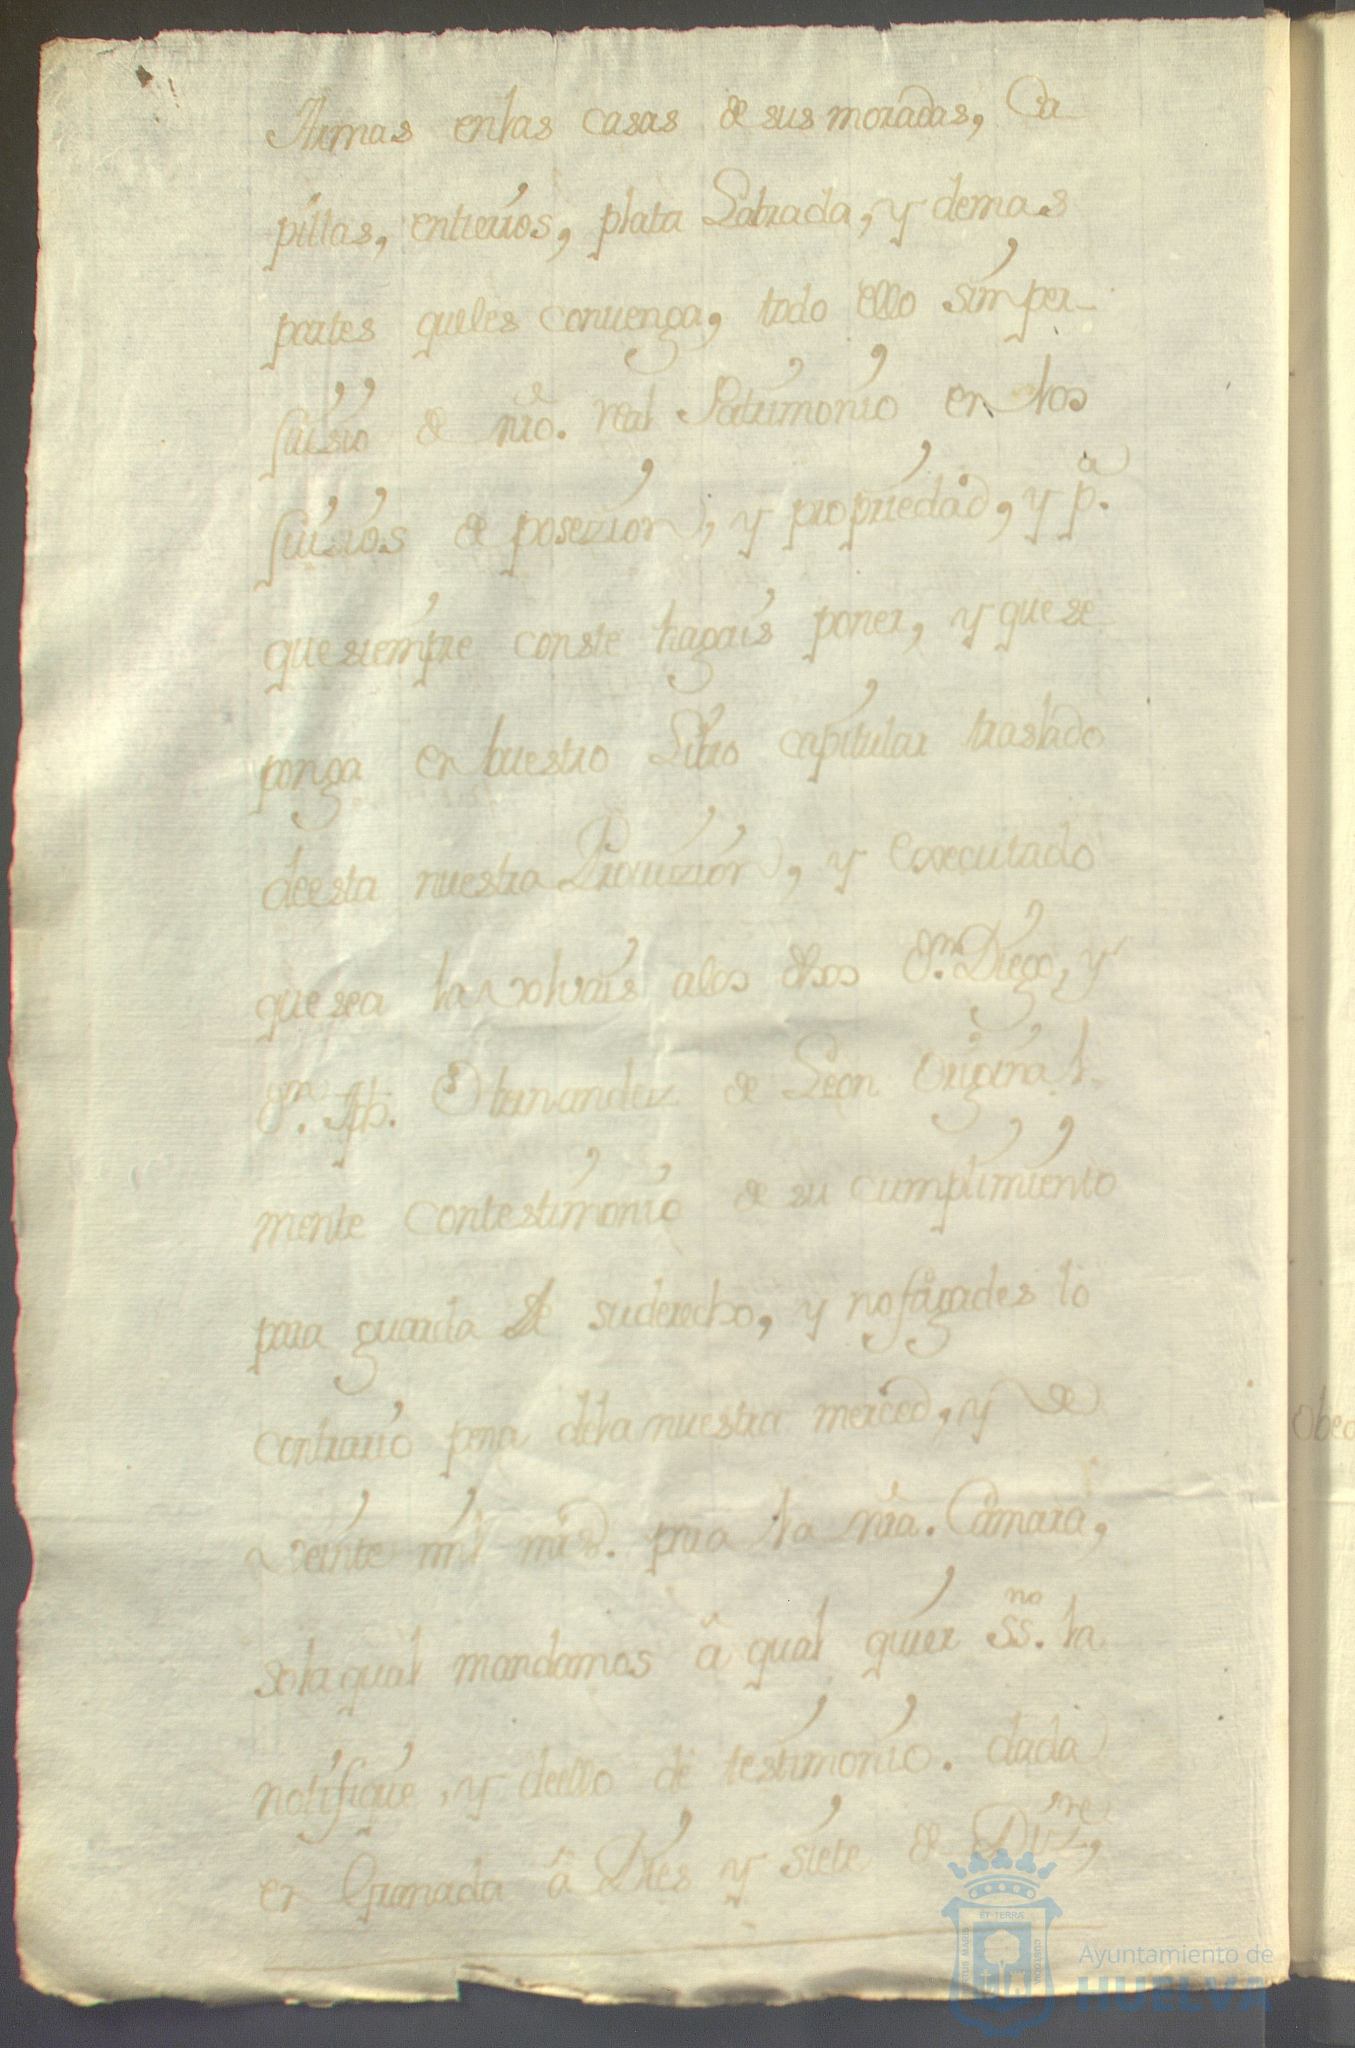 Armas enlas casas de sus moradas, Ca
pillas, entierros, plata Labrada, y demas
partes queles convenga, todo ello sin per-
juisio de nro. real Patrimonio en los
juisios de posezion, y propriedad, y pa.
que siempre conste hagais poner, y que se
ponga en buestro Libro capitular traslado
deesta nuestra Provizion, y executado
que sea la volvais alos dhos Dn. Diego, y
Dn. Jph. Hernandez de Leon Original-
mente contestimonio de su cumplimiento
para guarda de suderecho, y nofagades lo
contrario pena dela nuestra merced, y de
veinte mil mrs. para la nra. Camara,
sola qual mandamos â qual quier SSno. la
notifique, y deello dé testimonio. dada
en Granada â Dies y siete de Dizre,
Obed
ET TERRÆ
Ayuntamiento de
HUELVA